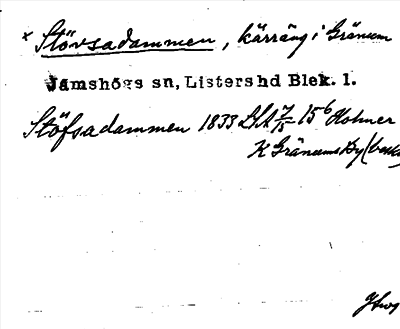 x Stövsadammen, kärräng i Gränum
Jämshögs sn, Listers hd Blek. l.
Stöfsadammen 1833 LSA 7/5 15⁶ Holmer
K Gränums By (besk